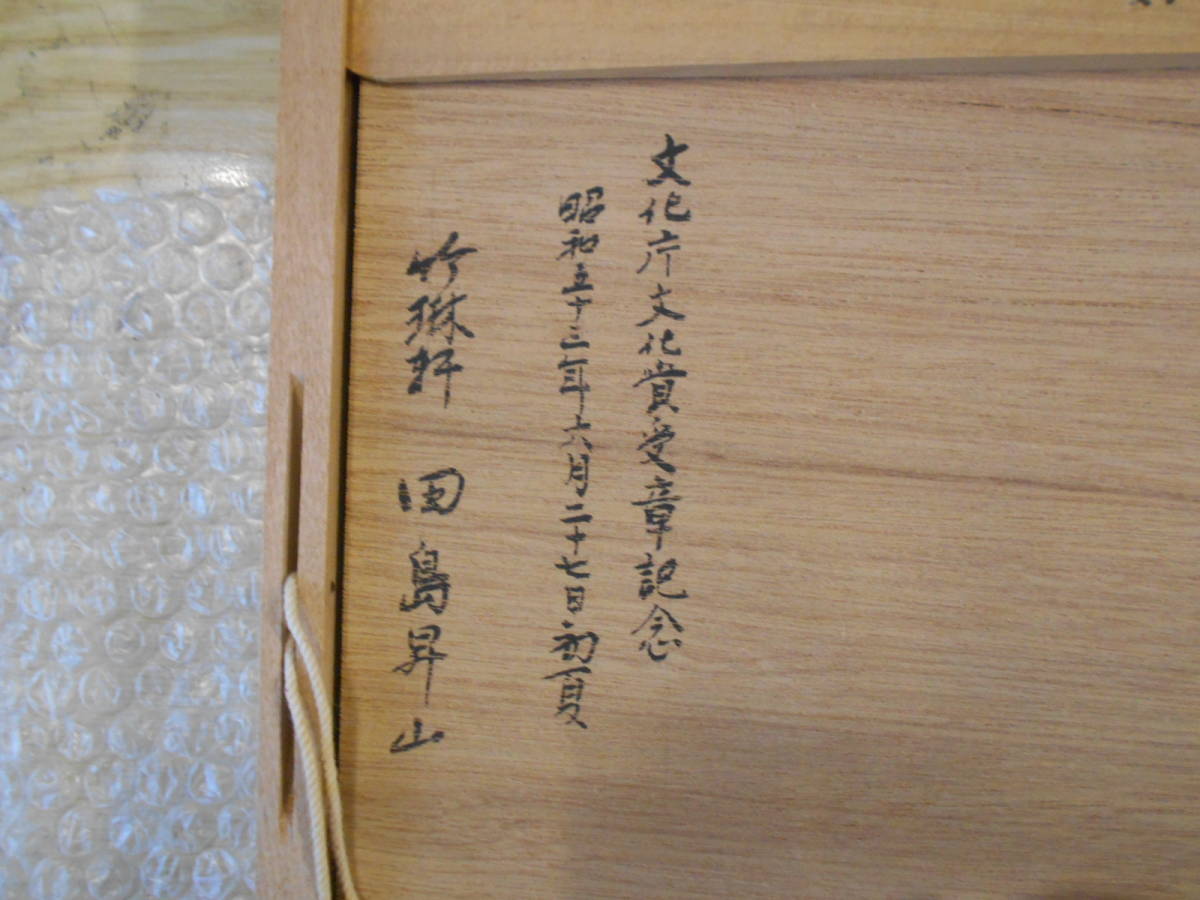 文化庁文化賞受章記念
昭和五十三年六月二十七日初夏
竹琳軒 田島昇山